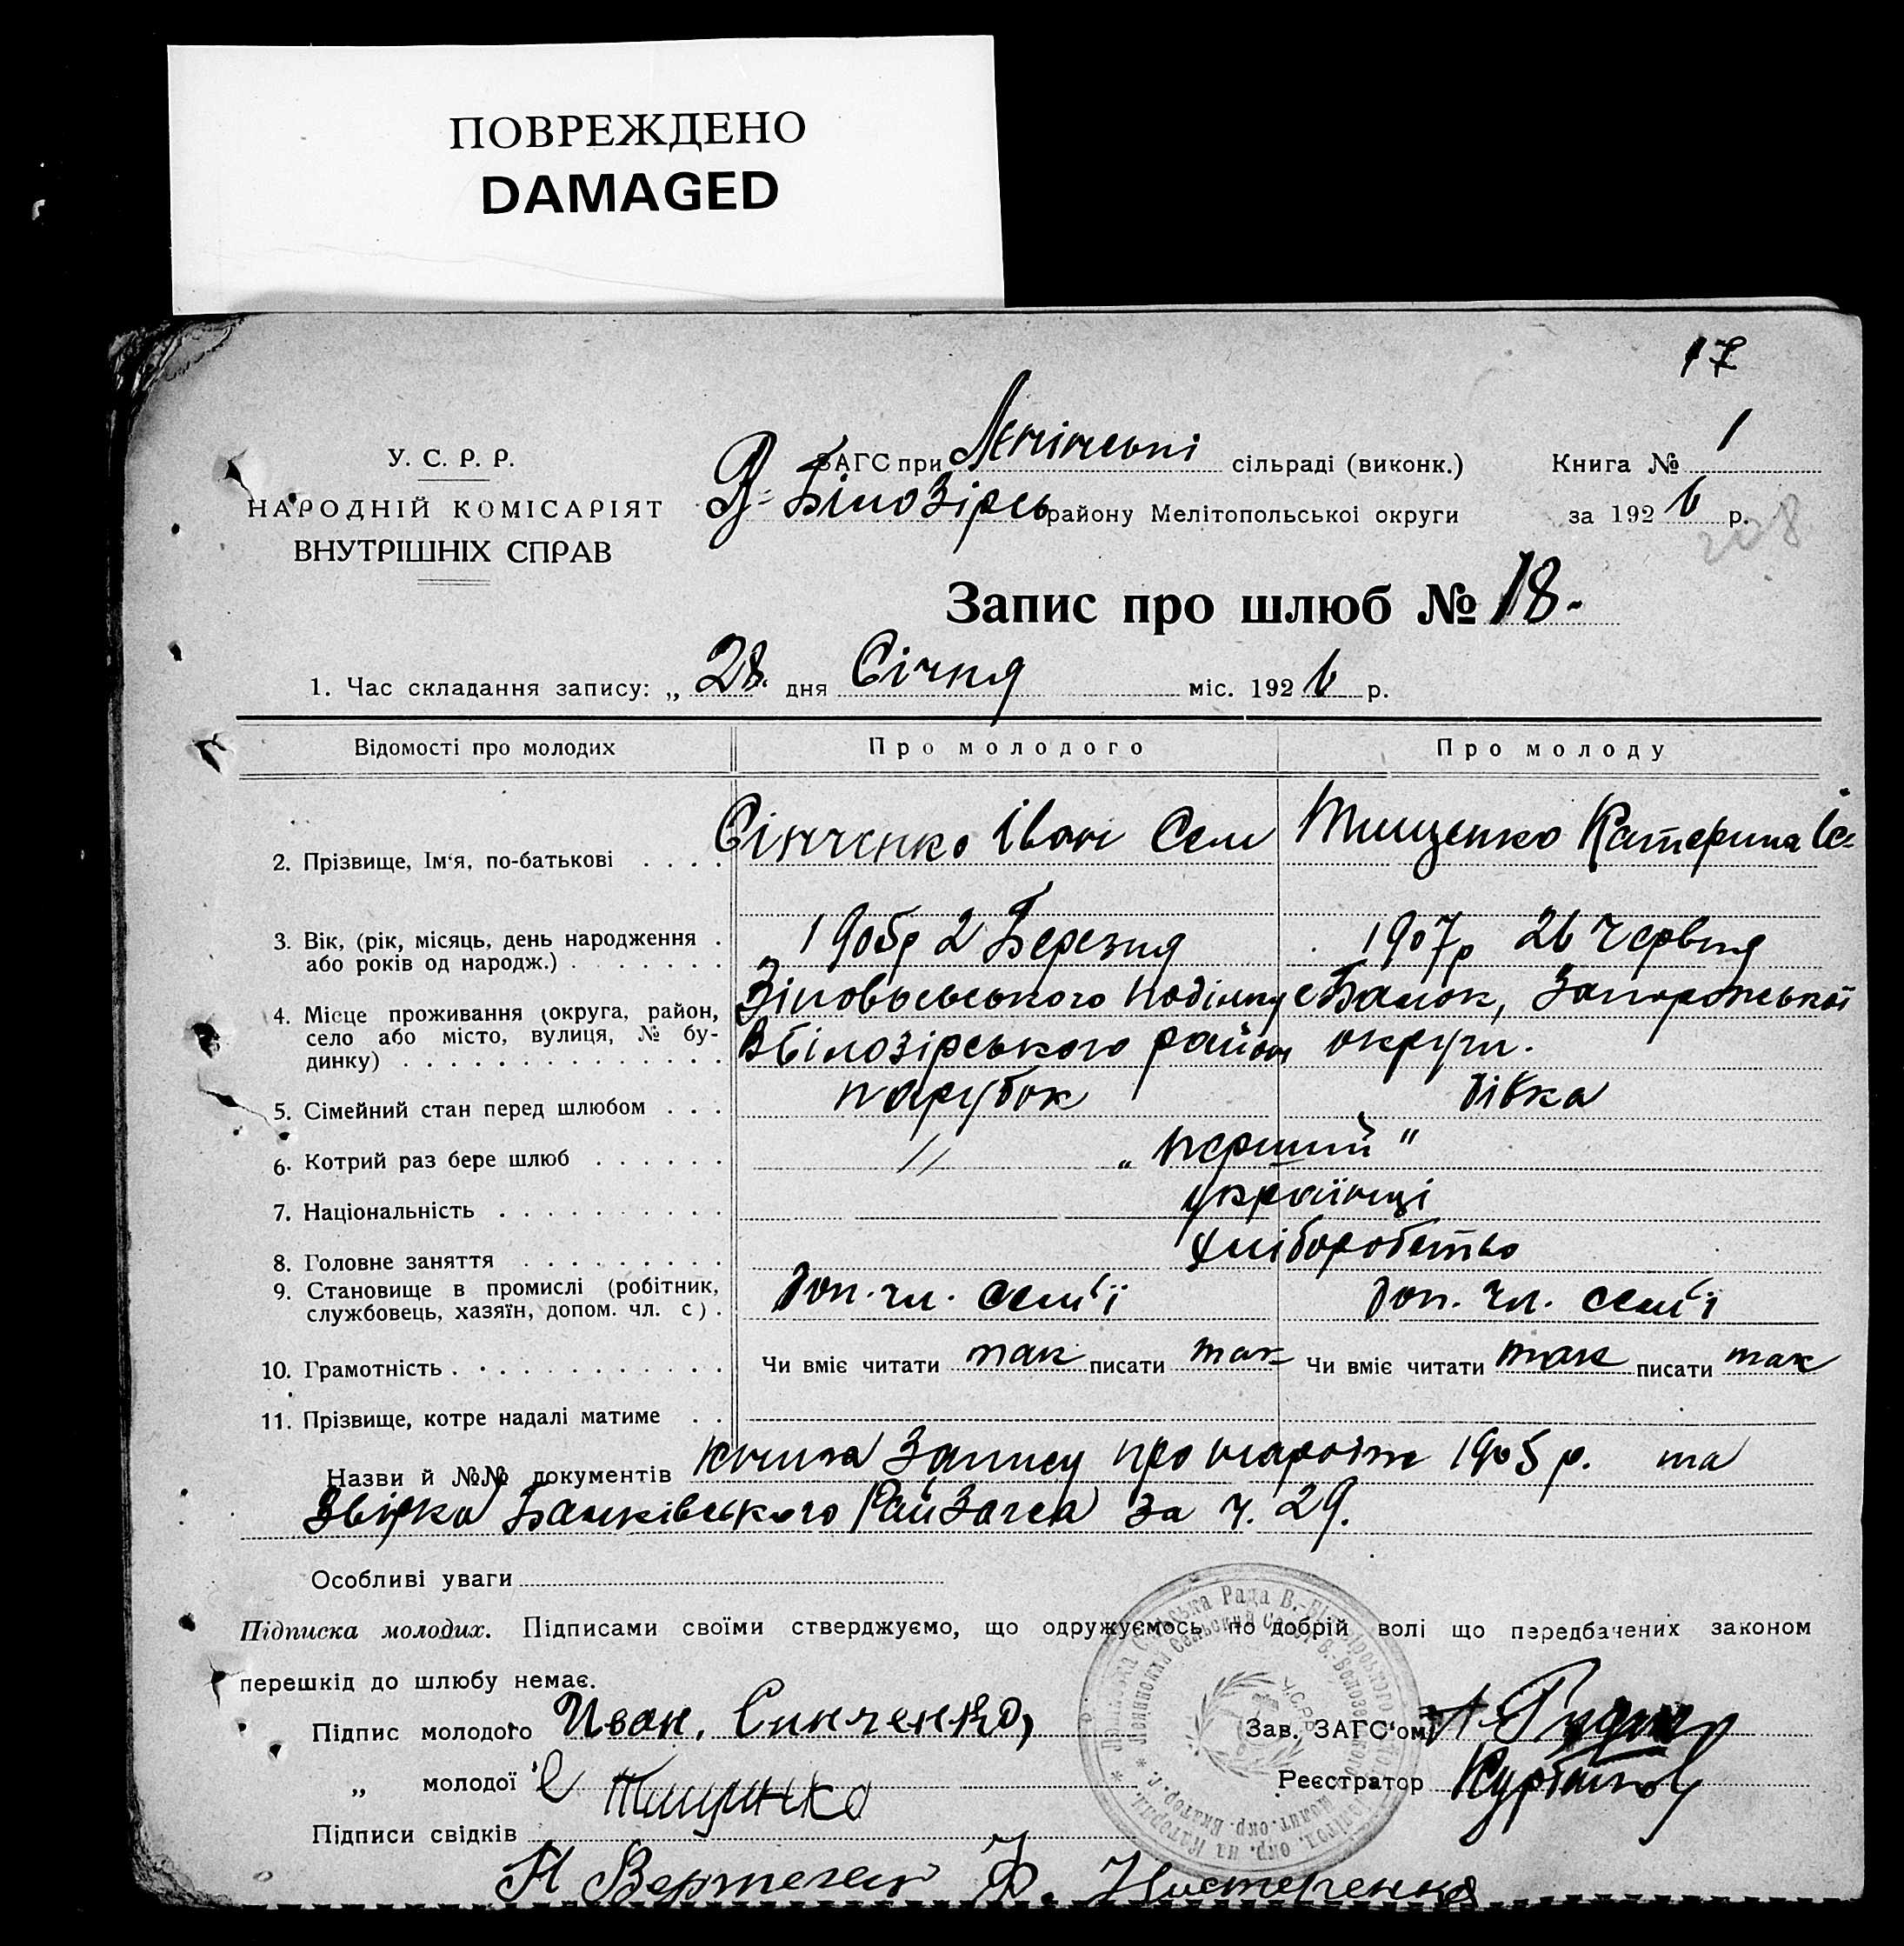 ПОВРЕЖДЕНО
DAMAGED
17
У. С. Р. Р.
НАРОДНІЙ КОМІСАРІЯТ
ВНУТРІШНІХ СПРАВ
ЗАГС при Ленінські сільраді (виконк.)
В-Білозірсь району Мелітопольської округи
Книга № 1
за 1926 р.
208
Запис про шлюб № 18.
1. Час складання запису: „ 28. дня Січня міс. 1926 р.
Відомості про молодих Про молодого Про молоду
2. Прізвище, Ім'я, по-батькові . . . . Сінченко Іван Сем Тищенко Катерина
3. Вік, (рік, місяць, день народження . 1905р 2 Березня 1907р 26 Червня
або років од народж.) . . . . . . .
4. Місце проживання (округа, район, с Балок, Запорожської
село або місто, вулиця, № бу- ВБілозірського району округи.
динку) . . . . . . . . . . . . . .
5. Сімейний стан перед шлюбом . . . парубок дівка
6. Котрий раз бере шлюб . . . . . . // „ перший "
7. Національність . . . . . . . . . . українці
8. Головне заняття . . . . . . . . . хліборобство
9. Становище в промислі (робітник, доп. чл. сем'ї доп. чл. сем'ї
службовець, хазяїн, допом. чл. с) .
10. Грамотність . . . . . . . . . . . . Чи вміє читати так писати так Чи вміє читати так писати так
11. Прізвище, котре надалі матиме . .
Назви й №№ документів книга Запису про народж 1905 р. та
Звірка Балківського РайЗагса за ч. 29.
Особливі уваги
Підписка молодих. Підписами своїми стверджуємо, що одружуємось по добрій волі що передбачених законом
перешкід до шлюбу немає.
Підпис молодого Иван. Синченко,
Зав. ЗАГС'ом
„ молодої Е Тищинко
Реєстратор
Підписи свідків